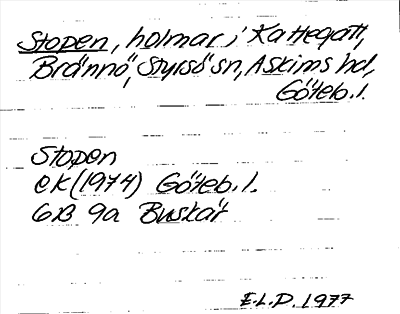 Stopen, holmar i Kattegatt,
Brännö, Styrsö sn, Askims hd,
Göteb. l.
Stopen
ek (1974) Göteb. l.
6B 9a Buskär
E.L.D. 1977